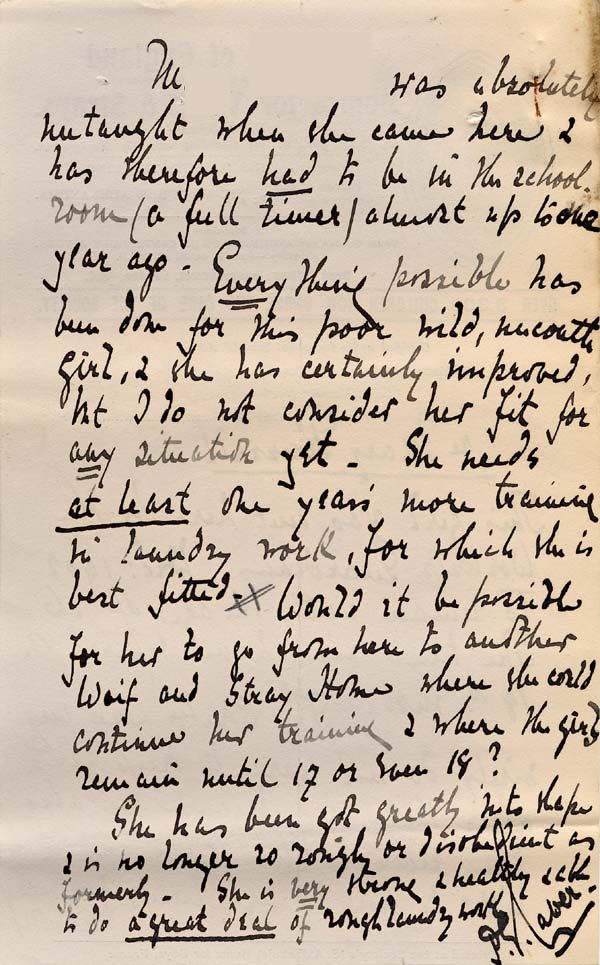 M was absolutely
untaught when she came here &
has therefore had to be in the school-
room (a full timer) almost up to one
year ago - Everything possible has
been done for this poor wild, uncouth
girl, & she has certainly improved,
but I do not consider her fit for
any situation yet - She needs
at least one years more training
in laundry work, for which she is
best fitted - Would it be possible
for her to go from here to another
Waif and Stray Home where she could
continue her training & where the girls
remain until 17 or even 18?
She has been got greatly into shape
& is no longer so roughly or disobedient as
formerly - She is very strong & healthy & able
to do a great deal of rough laundry work